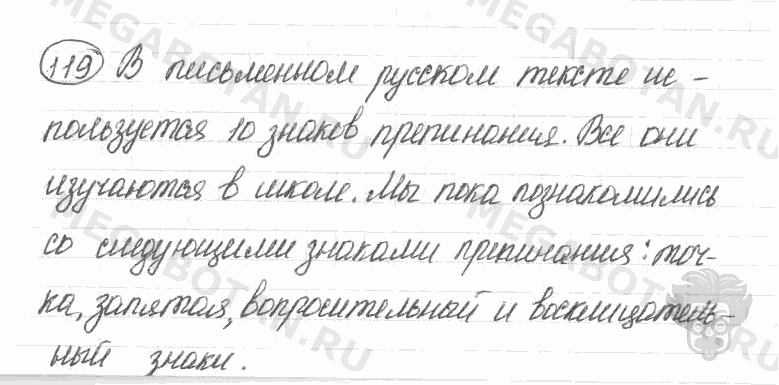 119 В письменном русском тексте ис-
пользуется 10 знаков препинания. Все они
изучаются в школе. Мы пока познакомились
со следующими знаками препинания: точ-
ка, запятая, вопросительный и восклицатель-
ный знаки.
MEGABOTAN.RU
MEGABOTAN.RU
MEGABOTAN.RU
MEGABOTAN.RU